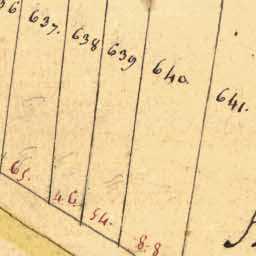 36 637. 638 639 640 641.
65. 4.6. 54. 8.8